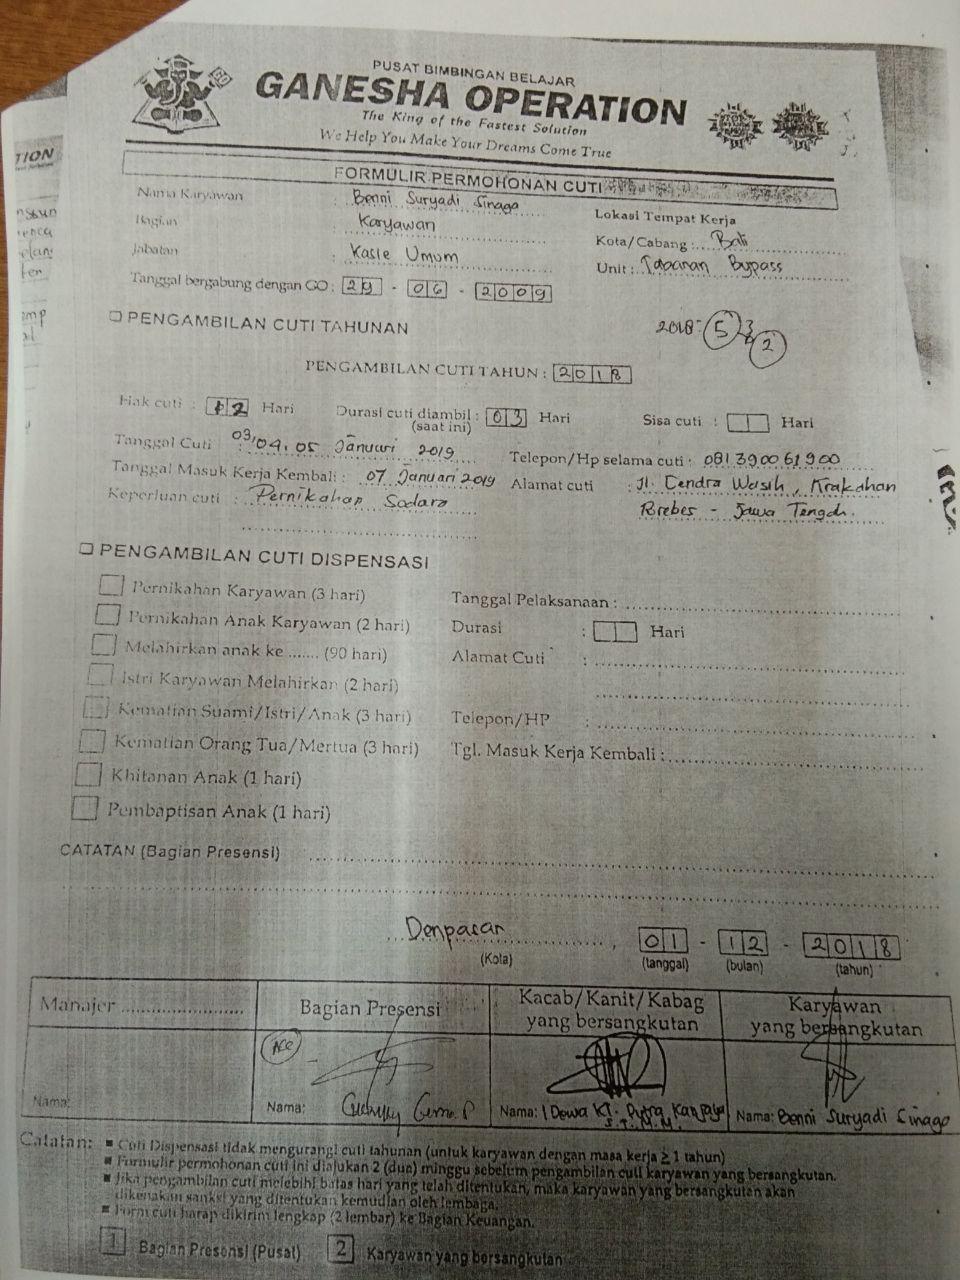 PUSAT BIMBINGAN BELAJAR
GANESHA OPERATION
The King of the Fastest Solution
We Help You Make Your Dreams Come True
FORMULIR PERMOHONAN CUTI
Nama Karyawan : Benni Suryadi Sinaga
Lokasi Tempat Kerja
Bagian : Karyawan
Kota/Cabang : Bali
Jabatan : Kasie Umum
Unit : Tabanan Bypass
Tanggal bergabung dengan GO : 29 - 06 - 2009
PENGAMBILAN CUTI TAHUNAN
2018: 5 2
PENGAMBILAN CUTI TAHUN : 2018
Hak cuti : 12 Hari Durasi cuti diambil : 03 Hari Sisa cuti : Hari
(saat ini)
Tanggal Cuti : 03, 04, 05 Januari 2019 Telepon/Hp selama cuti : 081390061900
Tanggal Masuk Kerja Kembali : 07 Januari 2019 Alamat cuti : Jl. Cendra Wasih, Krakahan
Keperluan cuti : Pernikahan Sodara Brebes - Jawa Tengah.
PENGAMBILAN CUTI DISPENSASI
Pernikahan Karyawan (3 hari) Tanggal Pelaksanaan :
Pernikahan Anak Karyawan (2 hari) Durasi : Hari
Melahirkan anak ke ....... (90 hari) Alamat Cuti :
Istri Karyawan Melahirkan (2 hari)
Kematian Suami/Istri/Anak (3 hari) Telepon/HP :
Kematian Orang Tua/Mertua (3 hari) Tgl. Masuk Kerja Kembali :
Khitanan Anak (1 hari)
Pembaptisan Anak (1 hari)
CATATAN (Bagian Presensi)
Denpasar, 01 - 12 - 2018
(Kota) (tanggal) (bulan) (tahun)
Manajer ........................ Bagian Presensi Kacab/Kanit/Kabag yang bersangkutan Karyawan yang bersangkutan
Acc
Nama: Nama: Nama: I Dewa Kt. Putra Nama: Benni Suryadi Sinaga
S.T. M.M.
Catatan: ■ Cuti Dispensasi tidak mengurangi cuti tahunan (untuk karyawan dengan masa kerja ≥ 1 tahun)
■ Formulir permohonan cuti ini diajukan 2 (dua) minggu sebelum pengambilan cuti karyawan yang bersangkutan.
■ Jika pengambilan cuti melebihi batas hari yang telah ditentukan, maka karyawan yang bersangkutan akan
dikenakan sanksi yang ditentukan kemudian oleh lembaga.
■ Form cuti harap dikirim lengkap (2 lembar) ke Bagian Keuangan.
1 Bagian Presensi (Pusat) 2 Karyawan yang bersangkutan